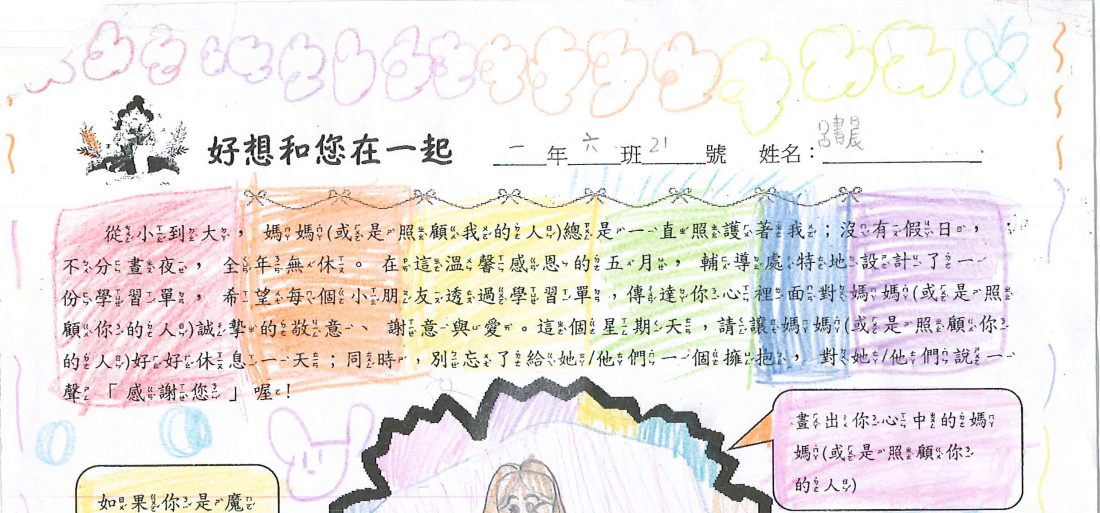 好想和您在一起 一年六班21號 姓名：呂書晨
從小到大，媽媽(或是照顧我的人)總是一直照護著我；沒有假日，
不分晝夜，全年無休。在這溫馨感恩的五月，輔導處特地設計了一
份學習單，希望每個小朋友透過學習單，傳達你心裡面對媽媽(或是照
顧你的人)誠摯的敬意、謝意與愛。這個星期天，請讓媽媽(或是照顧你
的人)好好休息一天；同時，別忘了給她/他們一個擁抱，對她/他們說一
聲「感謝您」喔！
畫出你心中的媽
媽(或是照顧你
的人)
如果你是魔